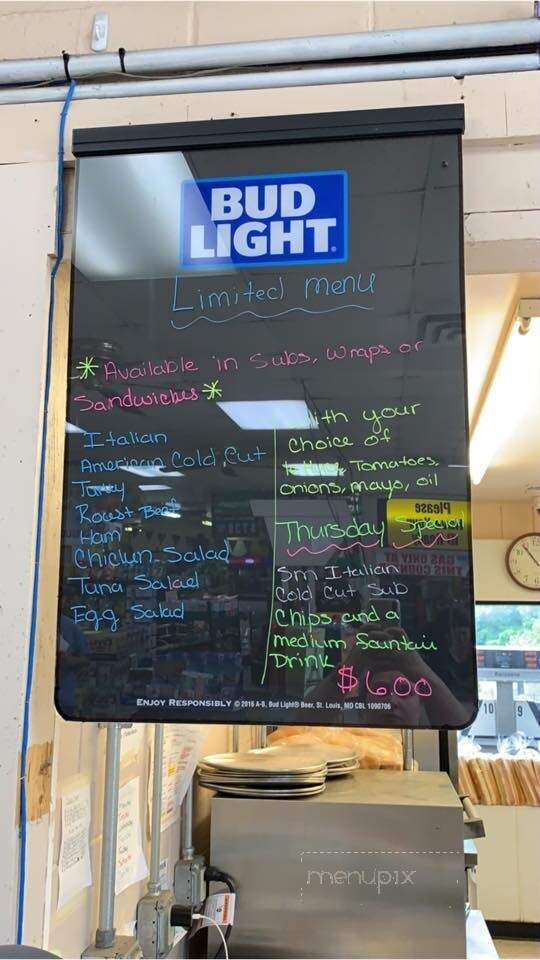 BUD
LIGHT
Limited menu
* Available in Subs, Wraps or
Sandwiches *
Italian
American Cold Cut
Turkey
Roast Beef
Ham
Chicken Salad
Tuna Salad
Egg Salad
With your
choice of
Tomatoes,
onions, mayo, oil
Thursday Special
Sm Italian
Cold Cut Sub
Chips and a
medium fountain
Drink
$6.00
ENJOY RESPONSIBLY © 2016 A-B, Bud Light® Beer, St. Louis, MO CBL 1090706
Please
GAS ONLY AT
10 9
menupix